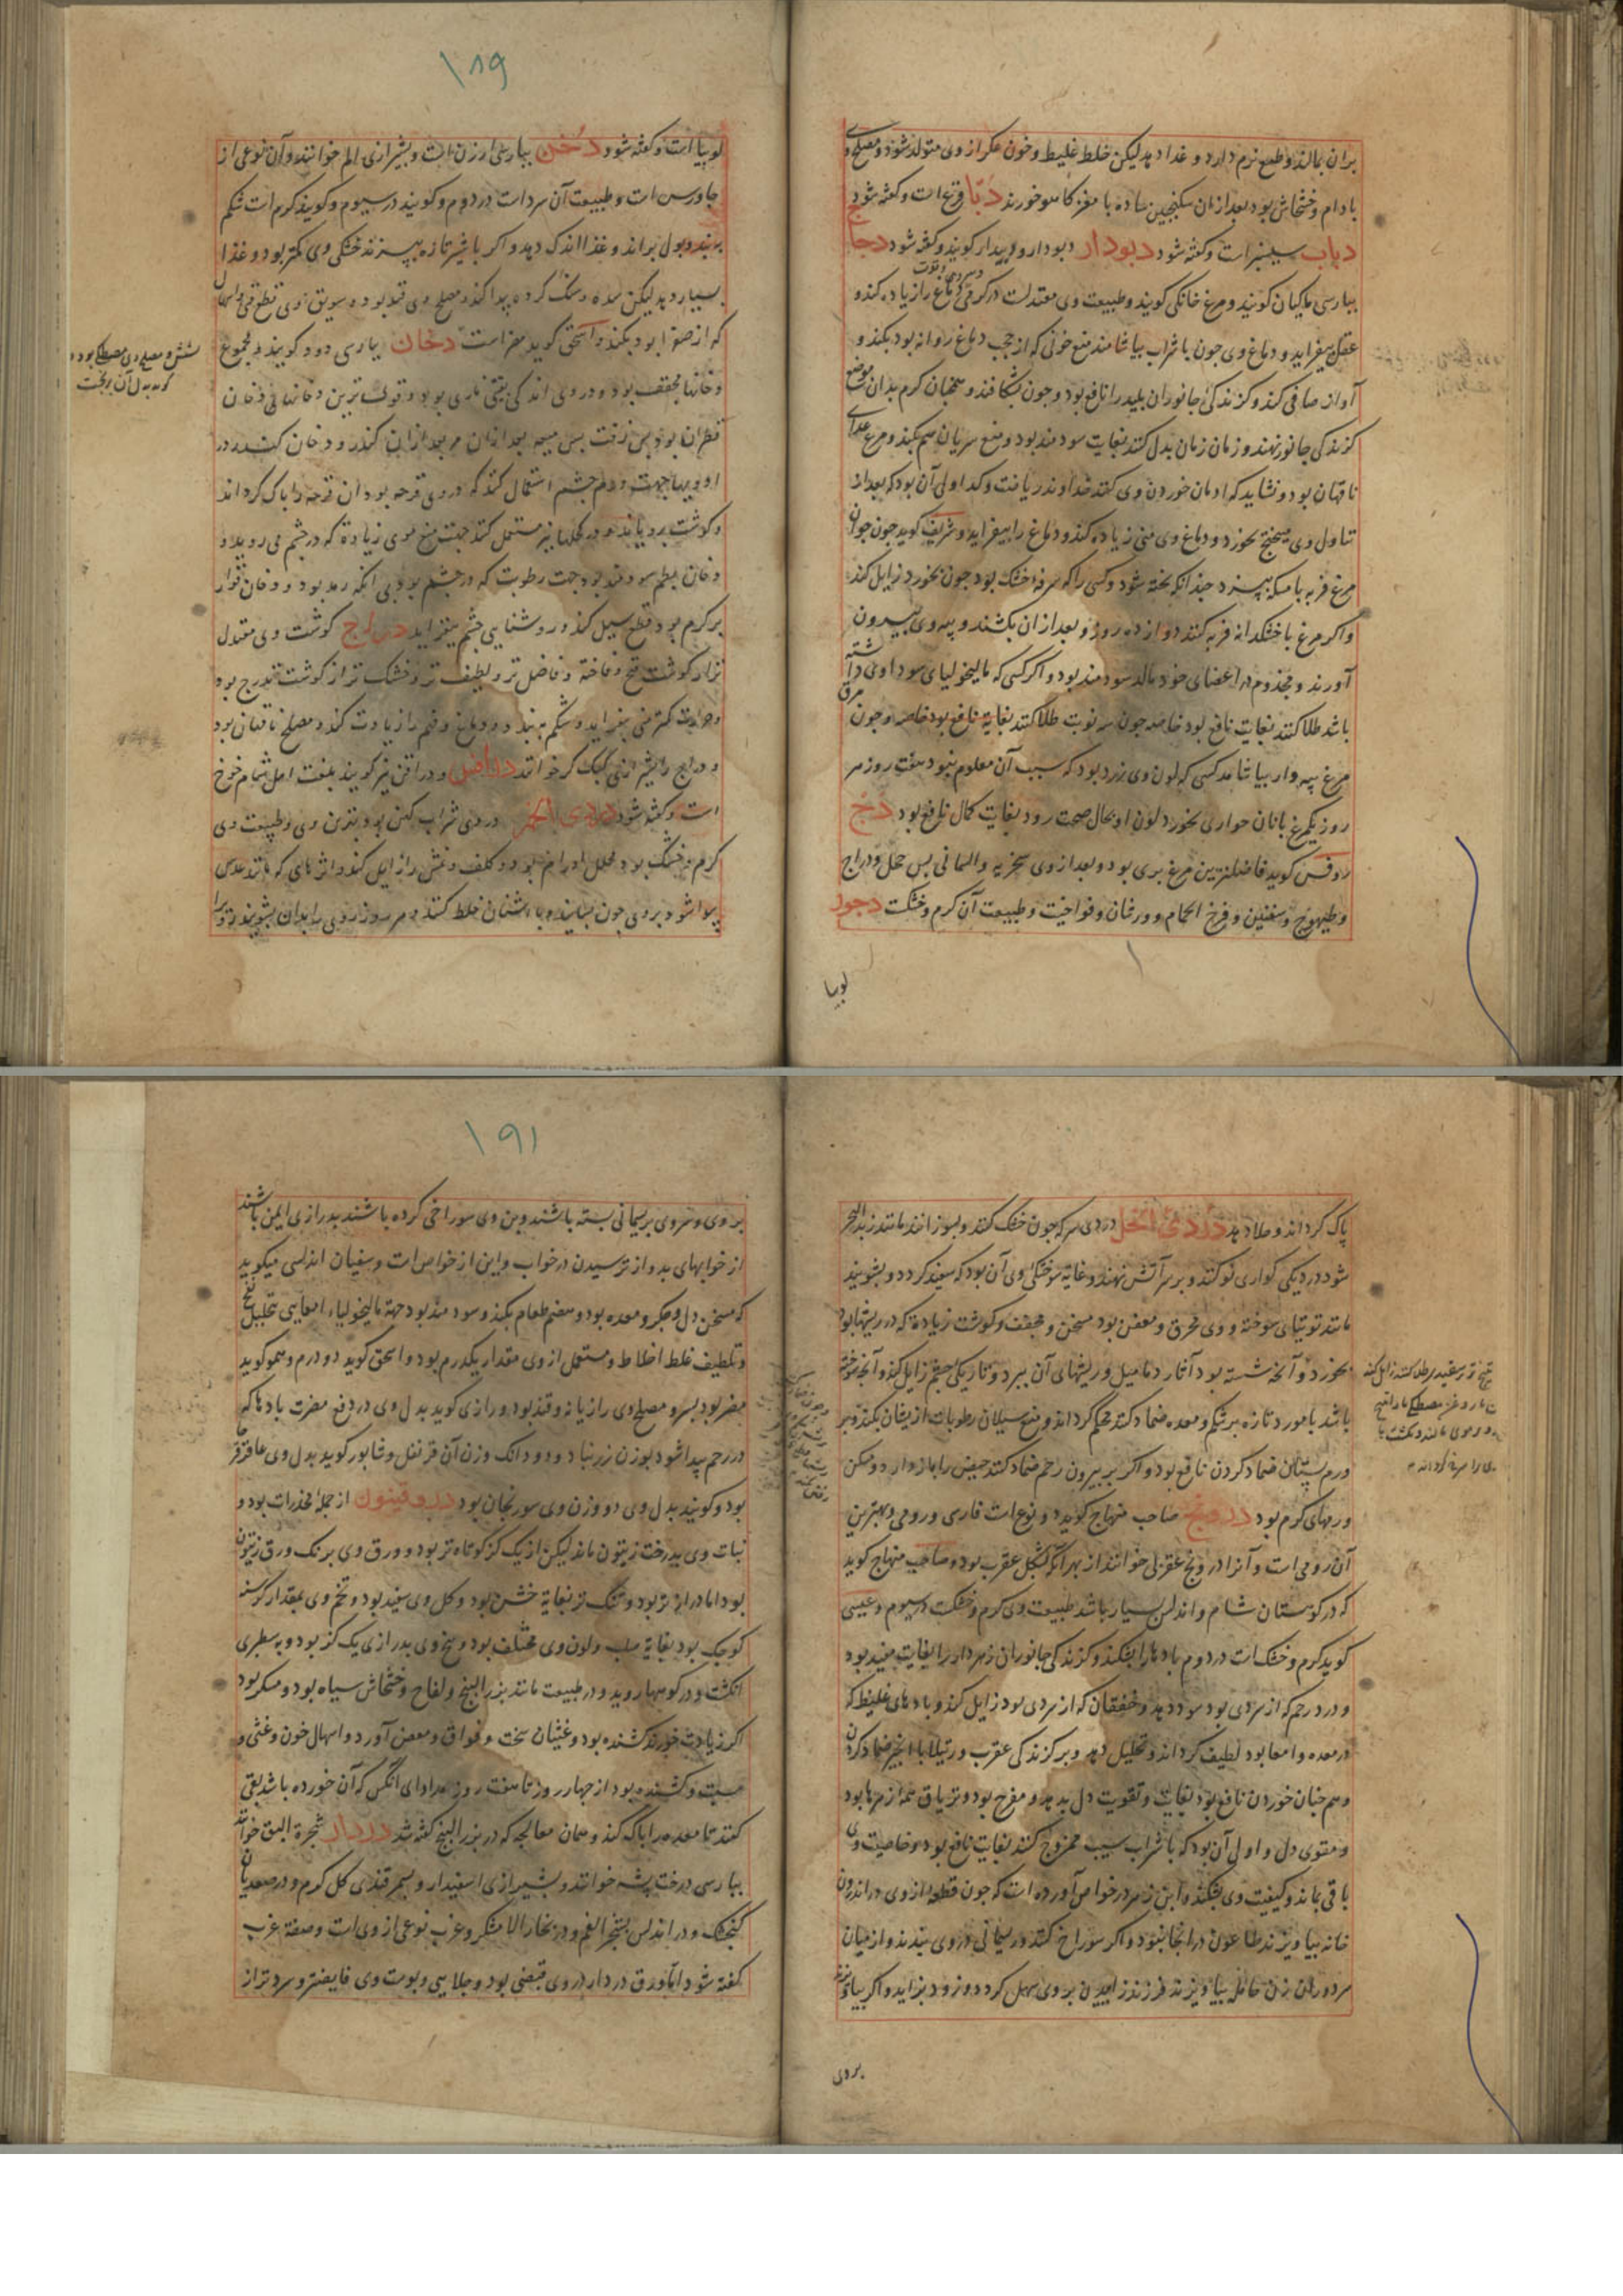 بران بمالند و طبع نرم دارد و غذا دهد لیکن خلط غلیظ و خون عکر از وی متولد شود و مصلح وی
بادام و خشخاش بود بعد از ان سکنجبین ساده با مغز کاهو خورند دبّا قرع است و کفته شود
دباب سیسنبر است و کفته شود دبودار دبودار و دیودار کویند و کفته شود دجاج
بپارسی ماکیان کویند و مرغ خانکی کویند و طبیعت وی معتدلست در کرمی دماغ را زیاده کند و
عقل بیفزاید و دماغ وی جون با شراب بیاشامند منع خونی که از حجب دماغ روانه بود بکند و
آواز صافی کند و کزندکی جانوران پلید را نافع بود و جون بشکافند و همچنان کرم بدان موضع
کزندکی جانور نهند و زمان زمان بدل کنند بغایت سودمند بود و منع سریان سم بکند و مرغ غذای
ناقهان بود و نشاید که ادمان خوردن وی کنند خداوند ریاضت و کد اولی آن بود که بعد از
تناول وی میبختج بخورد و دماغ وی منی زیاده کند و دماغ را بیفزاید و شریف کوید جون جوان
مرغ فربه با مسکه بپزد جندانکه پخته شود و کسی را که سرفه خشک بود جون بخورد زایل کند
و اکر مرغ با خشکدانه فربه کنند دوازده روز و بعد از ان بکشند و پیه وی بیرون
آورند و مجذوم در اعضای خود مالد سودمند بود و اکر کسی که مالیخولیای سوداوی داشته
باشد طلا کنند بغایت نافع بود خاصه جون سه نوبت طلا کنند بغایة نافع بود خاصه و جون مرق
مرغ پیه دار بیاشامد کسی که لون وی زرد بود که سبب آن معلوم نبود هفت روز هر
روز یکمرغ با نان حواری بخورد لون او بحال صحت رود بغایت کمال نافع بود دج
روفس کوید فاضلترین مرغ بری بود و بعد از وی شحریه و السمانی بس حجل و دراج
و طیهوج و شفنین و فرخ الحمام و ورشان و فواخیت و طبیعت آن کرم و خشکست دجود
لوبیا
۱۸۹
لوبیا است و کفته شود دخن بپارسی ارزن است و بشیرازی الم خوانند و آن نوعی از
جاورس است و طبیعت آن سرد است در دوم و کویند در سیوم و کویند کرم است شکم
ببندد و بول براند و غذا اندک دهد و اکر با شیر تازه بپزند خشکی وی کمتر بود و غذا
بسیار دهد لیکن سده و سنک کرده پیدا کند و مصلح وی قند بود و سویق وی قطع قی و اسهال
که از صفرا بود بکند و اسحق کوید مضر است دخان بپارسی دود کویند و مجموع
دخانها مجفف بود و در وی اندکی بقیتی ناری بود و قوی‌ترین دخانها دخان
قطران بود بس زفت بس میعه بعد از ان مر بعد از ان کندر و دخان کندر در
ادویها جهت ورم جشم استعمال کنند که در وی قرحه بود ان قرحه را پاک کرداند
و کوشت برویاند و در کحلها نیز مستعمل کنند جهت منع موی زیاده که در جشم می‌روید و
دخان بطم سودمند بود جهت رطوبت که در جشم بود بی انکه رمد بود و دخان
بر کرم بود قطع سیل کند و روشنایی جشم بیفزاید دراج کوشت وی معتدل
تر از کوشت و فاخته و فاضل تر و لطیف تر و خشک تر از کوشت تدرج بود
و حرارت کمتر منی بیفزاید و شکم ببندد و دماغ و فهم را زیادت کند و مصلح ناقهان بود
و دراج را بشیرازی کبک کر خوانند دراقن و دراقن نیز کویند بلغت اهل شام خوخ
است و کفته شود دردی الخمر دردی شراب کهن بود بهترین وی و طبیعت وی
کرم و خشک بود محلل اورام بود و کلف و نمش را زایل کند و اثرهای که مانند عدس
پیدا شود بر وی جون بسایند با اشنان خلط کنند و هر روز روی را بدان بشویند
شش و مصلح وی مصطکی بود و
کوید بدل آن
پاک کرداند و جلا دهد دردی الخل دردی سرکه جون خشک کنند و بسوزانند مانند زبد البحر
شود در دیکی کواری نو کنند و بر سر آتش نهند و غایة سوختکی وی آن بود که سفید کردد و بشویند
مانند توتیای سوخته و وی محرق و معفن بود مسخن و مجفف و کوشت زیاده که در ریشها بود
بخورد و آنجه شسته بود آثار دمامیل و ریشهای آن ببرد و تاریکی جشم زایل کند و آنجه سوخته
باشد با مورد تازه بر شکم و معده ضماد کنند محکم کرداند و منع سیلان رطوبات از یشان بکند و بر
ورم پستان ضماد کردن نافع بود و اکر بر بیرون رحم ضماد کنند حیض را باز دارد و مسکن
ورمهای کرم بود درونج صاحب منهاج کوید دو نوع است فارسی و رومی و بهترین
آن رومی است و آنرا درونج عقربی خوانند از بهر انکه بشکل عقرب بود و صاحب منهاج کوید
که در کوهستان شام و اندلس بسیار باشد طبیعت وی کرم و خشکست در سیوم و عیسی
کوید کرم و خشک است در دوم بادها را بشکند و کزندکی جانوران زهردار را بغایت مفید بود
و درد رحم که از سردی بود سود دهد و خفقان که از سردی بود زایل کند و بادهای غلیظ که
در معده و امعا بود لطیف کرداند و تحلیل دهد و بر کزندکی عقرب و رتیلا با انجیر ضماد کردن
و همجنان خوردن نافع بود بغایت و تقویت دل بدهد و مفرح بود و تریاق همه زهرها بود
و مقوی دل و اولی آن بود که با شراب سیب ممزوج کنند بغایت نافع بود و خاصیت وی
باقی بماند و کیفیت وی بشکند و ابن زهر در خواص آورده است که جون قطعه از وی در اندرون
خانه بیاویزند طاعون در انجا نبود و اکر سوراخ کنند و ریسمانی در وی بندند و از میان
هر دو ران زن حامله بیاویزند فرزند زاییدن بر وی سهل کردد و زود بزاید و اکر بیاویزند
بر وی
۱۹۱
بر وی و سر وی بریسمانی بسته باشند و بن وی سوراخی کرده باشند بدرازی ایمن باشند
از خوابهای بد و از ترسیدن در خواب و این از خواص است و سفیان اندلسی میکوید
که مسخن دل و جکر و معده بود و هضم طعام بکند و سودمند بود جهة مالیخولیاء امعایی تحلیل نفخ
و تلطیف غلظ اخلاط و مستعمل از وی مقدار یکدرم بود و اسحق کوید دو درم و هموکوید
مضر بود بسر و مصلح وی رازیانه و قند بود و رازی کوید بدل وی در دفع مضرت بادها که
در رحم پیدا شود بوزن زرنباد و دو دانک وزن آن قرنفل و شابور کوید بدل وی عاقرقرحا
بود و کویند بدل وی دو وزن وی سورنجان بود دروقنیون از جمله مخدرات بود و
نبات وی بدرخت زیتون ماند لیکن از یک کز کوتاه تر بود و ورق وی برنک ورق زیتون
بود اما درازتر بود و تنک تر بغایة خشن بود و کل وی سفید بود و تخم وی بمقدار کرسنه
کوجک بود بغایة صلب و لون وی مختلف بود و بیخ وی بدرازی یک کز بود و به سطبری
انکشت و در کوهها روید و در طبیعت مانند بزر البنج و لفاح و خشخاش سیاه بود و مسکر بود
اکر زیادت خورند کشنده بود و غثیان سخت و فواق و مغص آورد و اسهال خون و غشی و
سبت و کشنده بود از جهار روز تا هفت روز مداوای آنکس که آن خورده باشد بقی
کنند تا معده را پاک کند و همان معالجه که در بزر البنج کفته شد دردار شجرة البق خوانند
بپارسی درخت پشه خوانند و بشیرازی اسفیدار و بسمرقندی کل کرم و در صعدیان
کنجشک و در اندلس بشجر الغم و در بخارا لامشکر و غرب نوعی از وی است و صفة غرب
کفته شود اما ورق دردار در وی قبضی بود و جلایی و پوست وی قابضتر و سردتر از